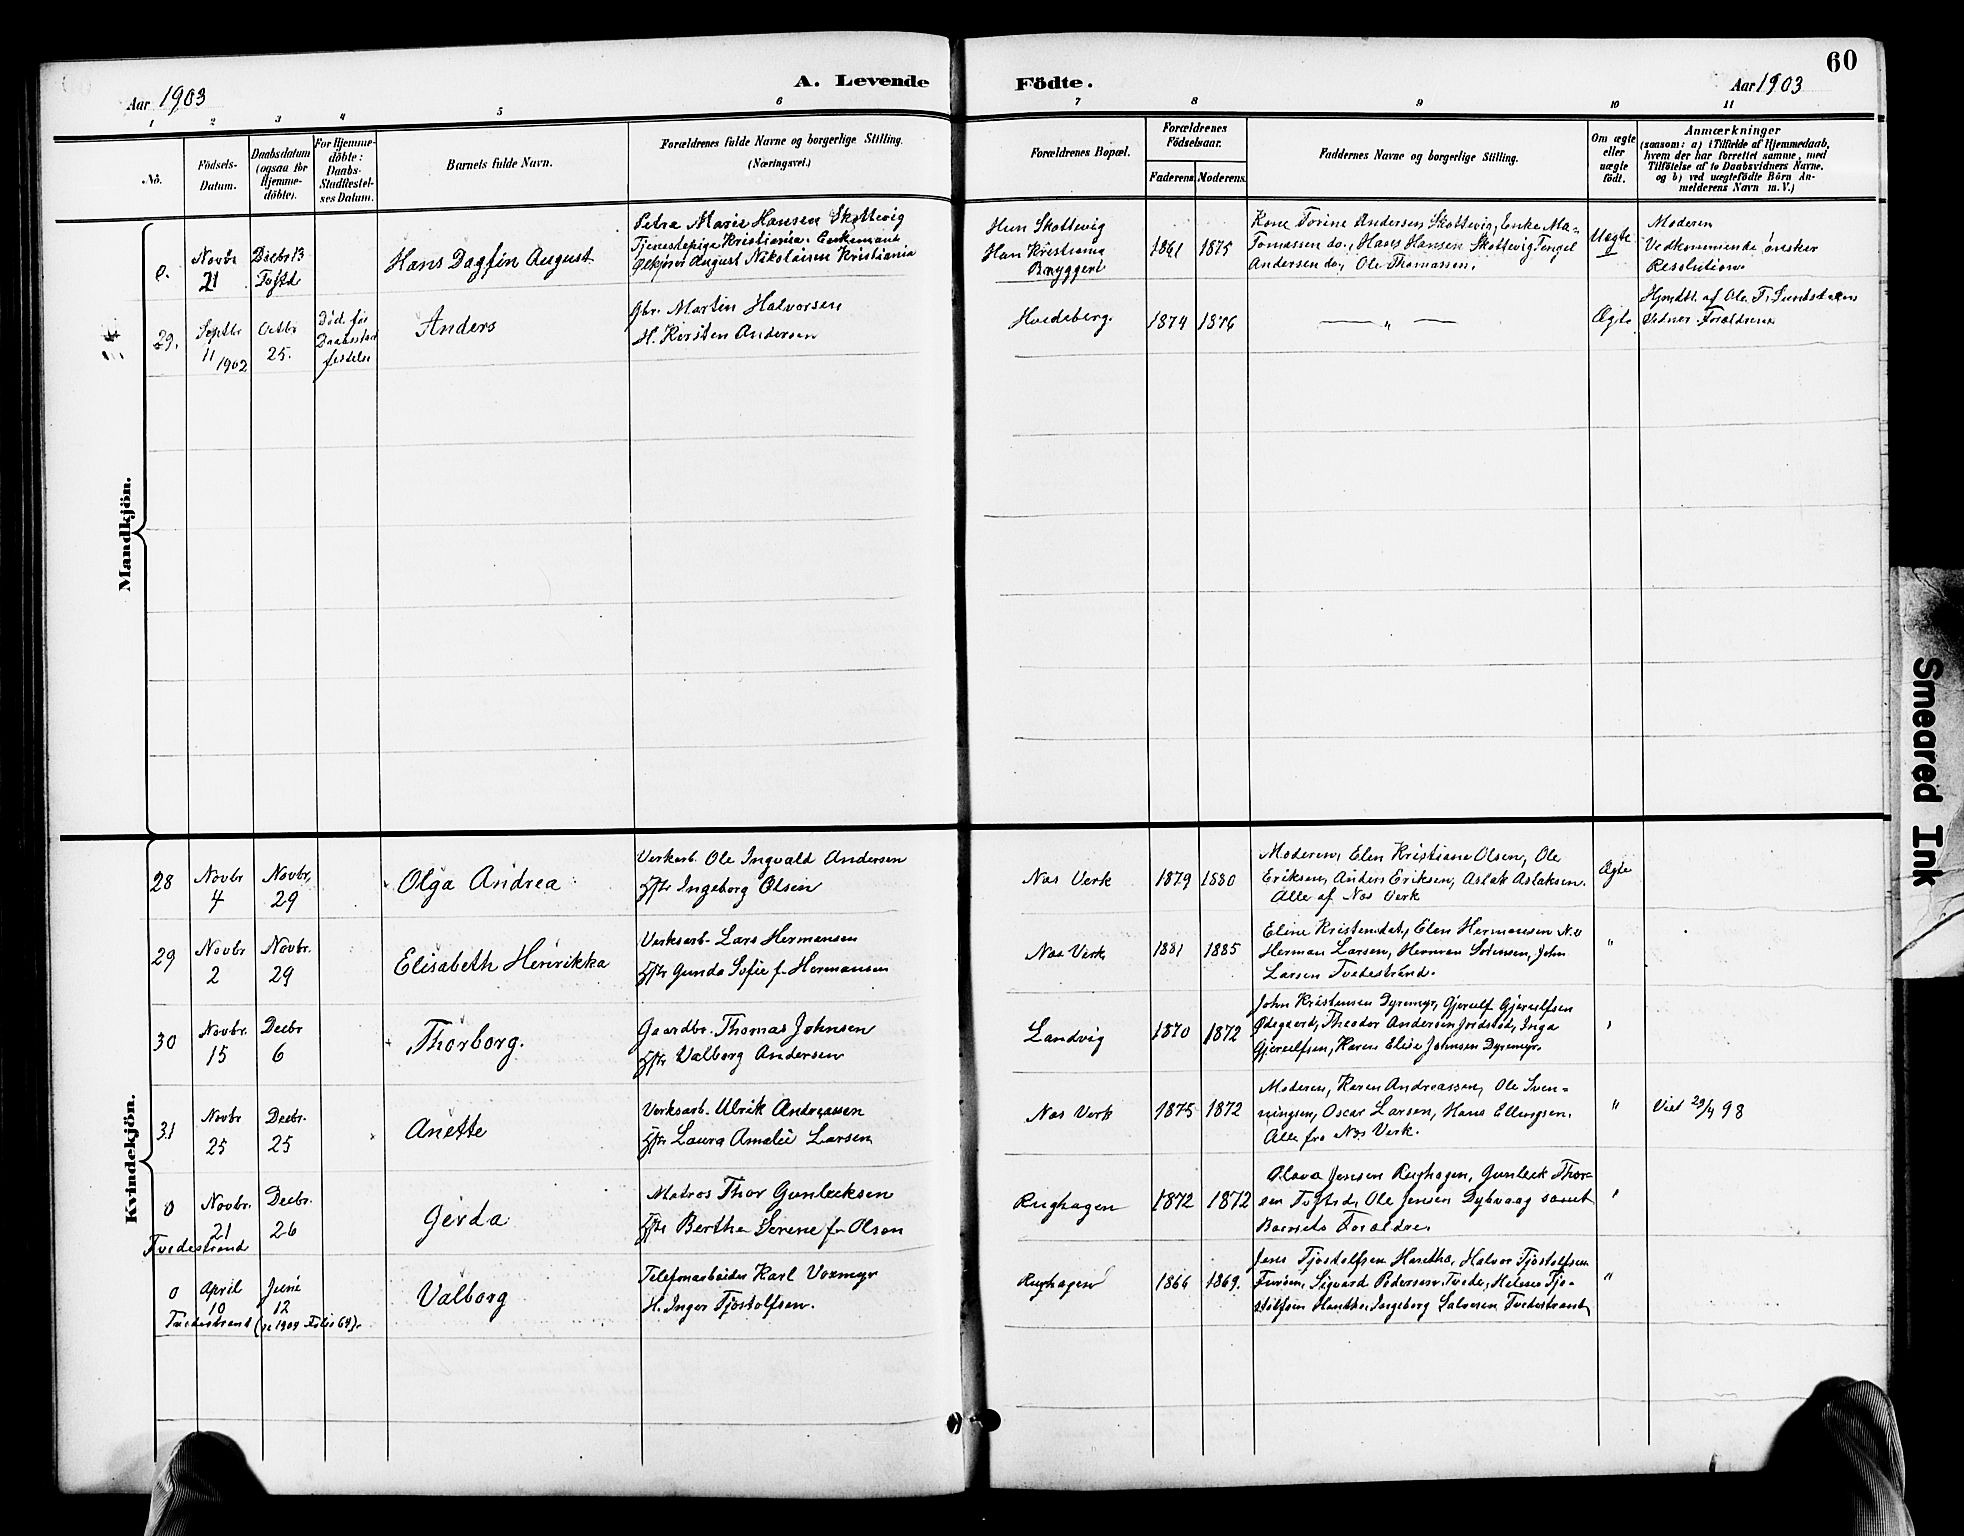 60
A. Levende Födte.
Aar 1903
Aar 1903
1 2 3 4 5 6 7 8 9 10 11
No.
Födsels-Datum.
Daabsdatum (ogsaa for Hjemme-döbte).
For Hjemme-döbte: Daabs-Stadfæstel-ses Datum.
Barnets fulde Navn.
Forældrenes fulde Navne og borgerlige Stilling.
(Næringsvei.)
Forældrenes Bopæl.
Forældrenes Födselsaar.
Faderens. Moderens.
Faddernes Navne og borgerlige Stilling.
Om ægte eller uægte födt.
Anmærkninger
(saasom: a) i Tilfælde af Hjemmedaab,
hvem der har forrettet samme, med
Tilföielse af to Daabsvidners Navne.
og b) ved uægtefödte Börn An-
melderens Navn m. V.)
Mandkjön.
o. Novbr 21 Decbr 13 Tofstd
Hans Dagfin August
Petra Marie Hansen Skottevig
Tjenestepige Kristiania. Enkemand
Ølkjører August Nikolaisen Kristiania
Hun Skottevig
Han Kristiania
Bryggeri
1861 1875
Kone Torine Andersen Skottevig, Enke Ma-
Tomassen do., Hans Hansen Skottevig, Tengel
Andersen do., Ole Thomassen.
Uægte
Moderen
Vedkommende ønsker
Resolution.
29. Septbr 11 1902 Octbr 25.
Død før
Daabsstad
festelse
Anders
Gbr. Martin Halvorsen
H. Kirsten Andersen
Hvedeberg.
1874 1876
— " —
Ægte
Hjmdbt. af Ole T. Sundsdalen
Vidner: Forældrene
Kvindekjön.
28 Novbr 4 Novbr. 29
Olga Andrea
Verksarb. Ole Ingvald Andersen
Hstr Ingeborg Olsen
Nes Verk
1879 1880
Moderen, Elen Kristiane Olsen, Ole
Eriksen, Anders Eriksen, Aslak Aslaksen.
Alle af Nes Verk
Ægte
29 Novbr 2 Novbr. 29
Elisabeth Henrikka
Verksarb. Lars Hermansen
Hstr Gunda Sofie f. Hermansen
Nes Verk
1881 1885
Eline Kristensdat., Elen Hermansen N.v
Herman Larsen, Herman Sørensen, John
Larsen Tvedestrand.
"
30 Novbr. 15 Decbr 6
Thorborg.
Gaardbr. Thomas Johnsen
Hstr Valborg Andersen
Landvig
1870 1872
John Kristensen Dyremyr, Gjerulf Gjerulfsen
Ødegaard, Theodor Andersen Jordstød, Inga
Gjerulfsen, Karen Elise Johnsen Dyremyr.
"
31 Novbr 25 Decbr. 25
Anette
Verksarb. Ulrik Andreassen
Hstr Laura Amalie Larsen
Nes Verk
1875 1872
Moderen, Karen Andreassen, Ole Sven-
ningsen, Oscar Larsen, Hans Ellingsen.
Alle fra Nes Verk.
"
Viet 29/4 98
o Novbr. 21 Decbr. 26
Tvedestrand
Gerda
Matros Thor Gunlecksen
Hstr Berthe Serene f. Olsen
Rughagen
1872 1872
Olava Jensen Rughagen, Gunleck Thor-
sen Tofstrd, Ole Jensen Dybvaag samt
Barnets Forældre.
"
o April 10 Juni 12
Tvedestrand (se 1904 Folio 64).
Valborg
Telefonarbeider Karl Voxmyr
H. Inger Tjøstolfsen.
Rughagen
1866 1869.
Jens Tjøstolfsen Hantho, Halvor Tjøstolfsen
Furøen, Sigvard Pedersen Tvede, Helene Tjø-
stolfsen Hantho, Ingeborg Salvesen Tvedestrand
"
Smeared Ink